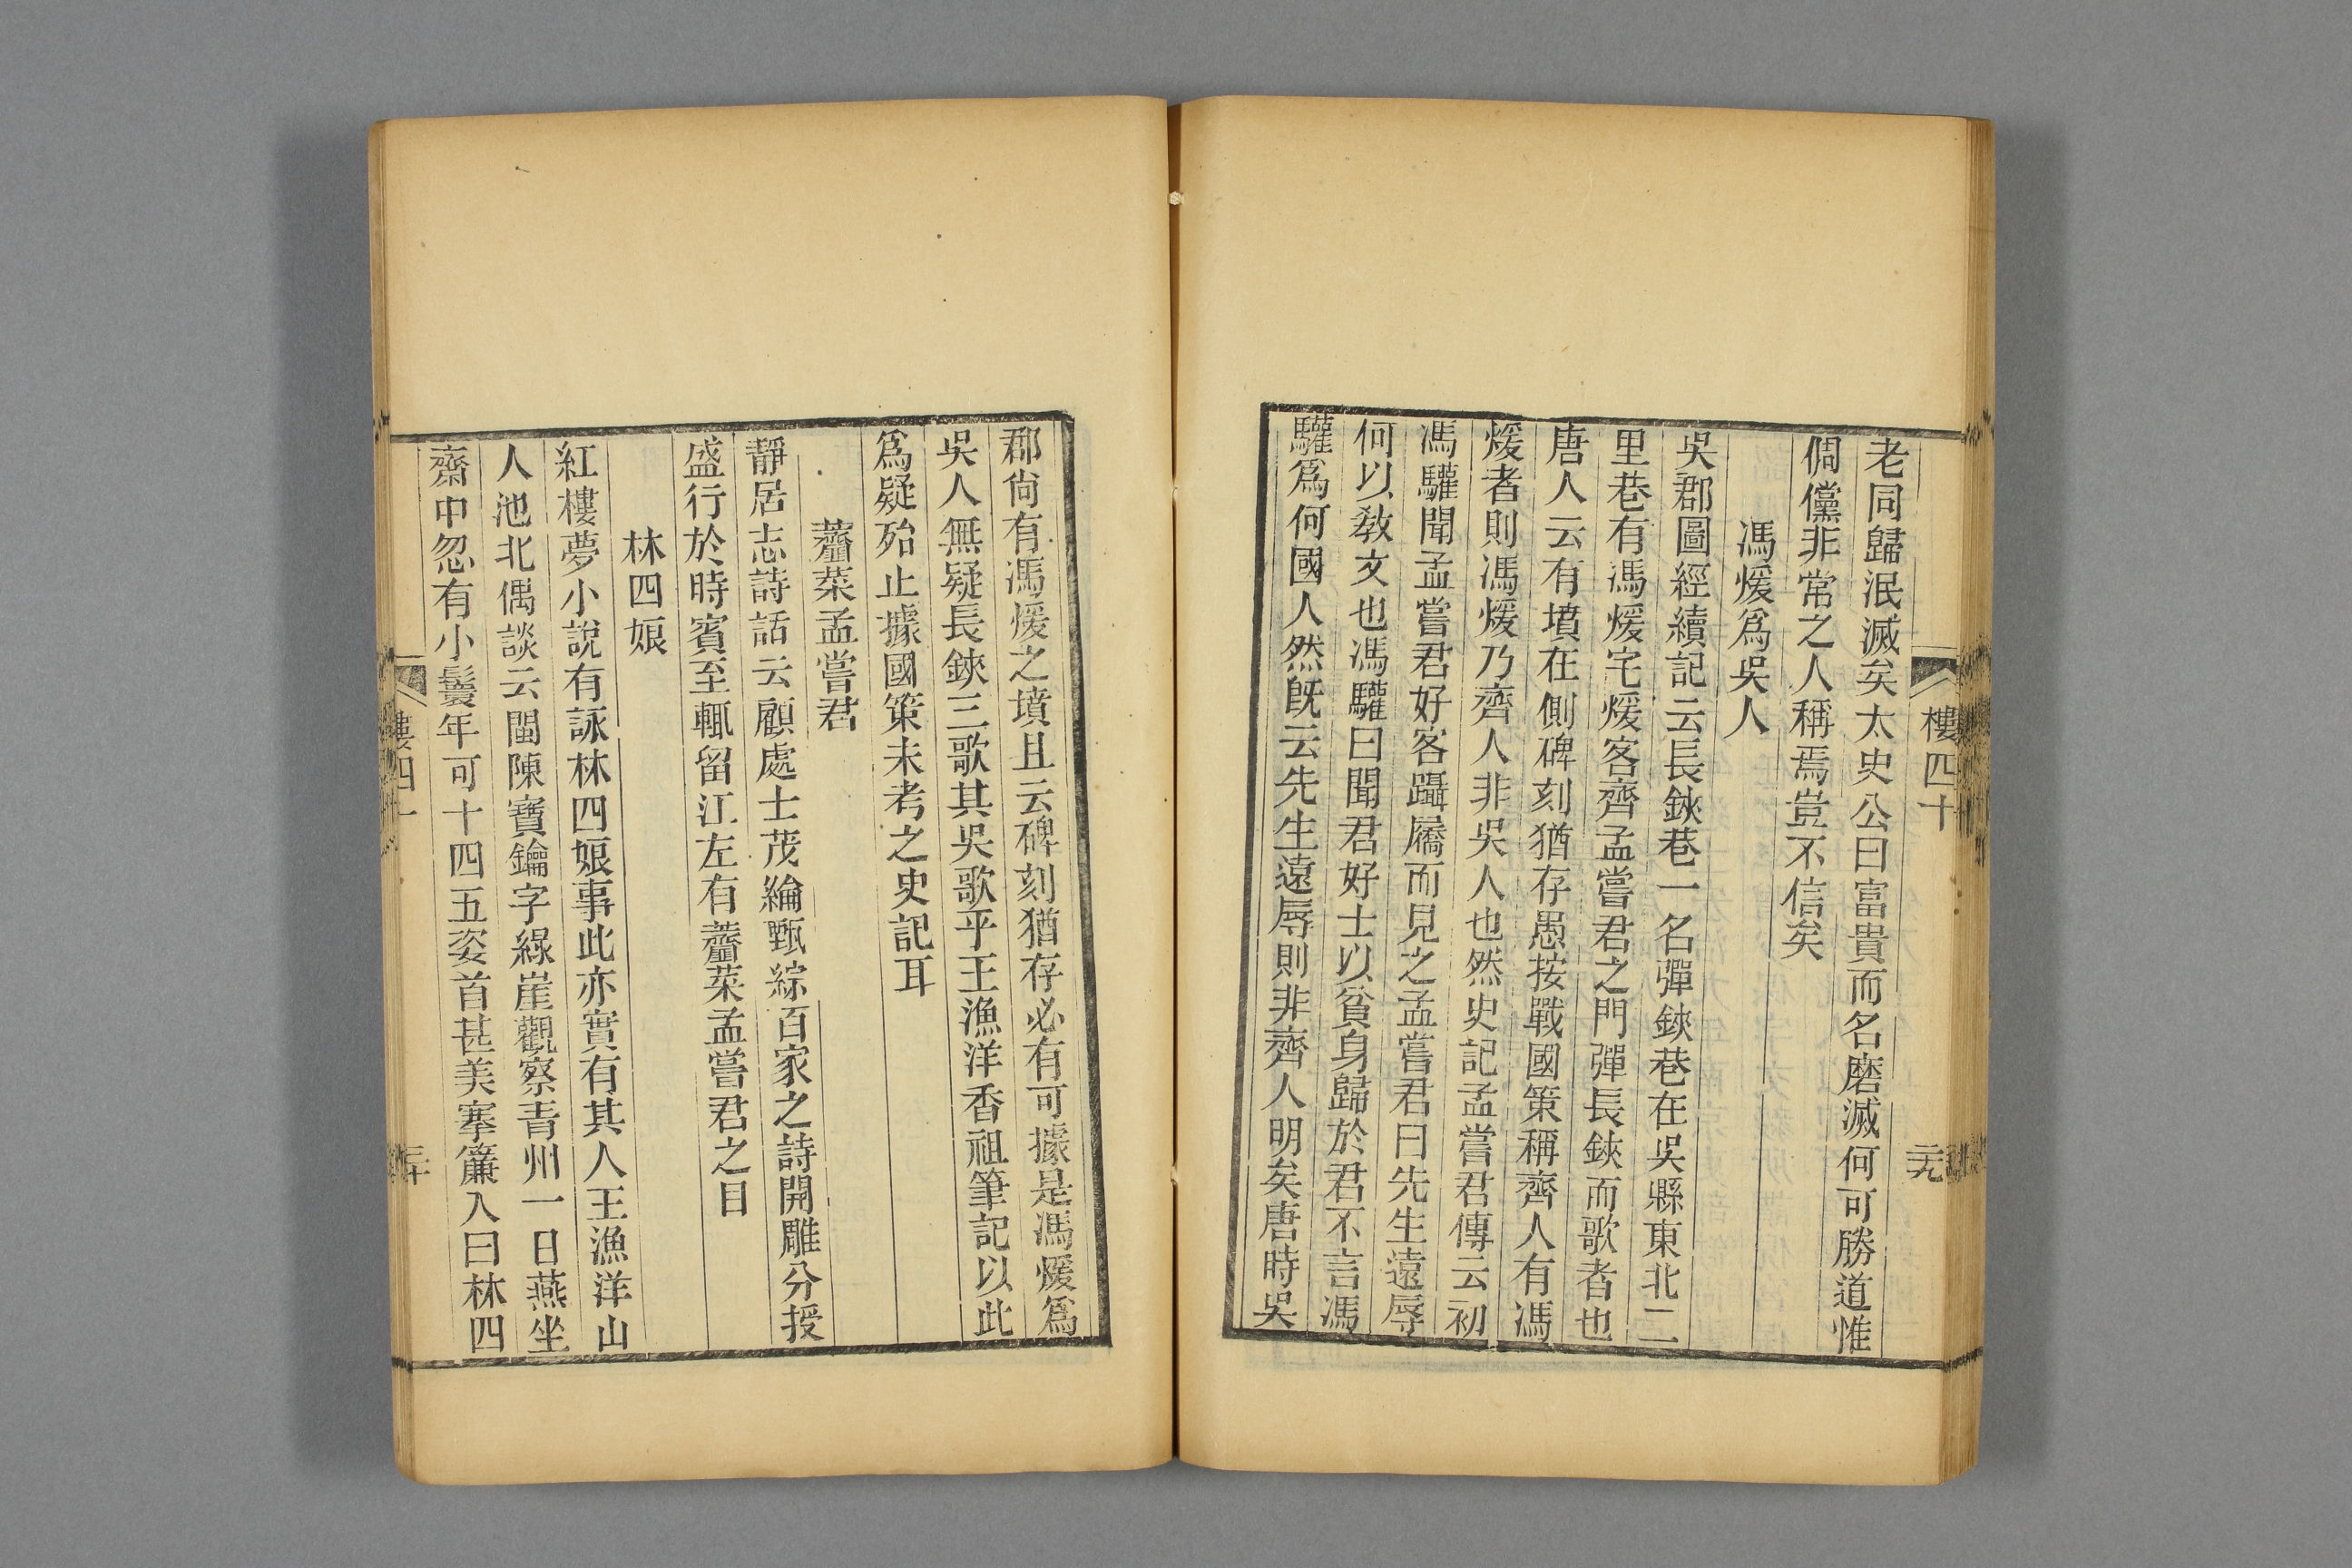 樓四十
二十九
老同歸泯滅矣太史公曰富貴而名磨滅何可勝道惟
倜儻非常之人稱焉豈不信矣
馮煖爲吳人
吳郡圖經續記云長鋏巷一名彈鋏巷在吳縣東北二
里巷有馮煖宅煖客齊孟嘗君之門彈長鋏而歌者也
唐人云有墳在側碑刻猶存愚按戰國策稱齊人有馮
煖者則馮煖乃齊人非吳人也然史記孟嘗君傳云初
馮驩聞孟嘗君好客躡屩而見之孟嘗君曰先生遠辱
何以敎文也馮驩曰聞君好士以貧身歸於君不言馮
驩爲何國人然旣云先生遠辱則非齊人明矣唐時吳
郡尙有馮煖之墳且云碑刻猶存必有可據是馮煖爲
吳人無疑長鋏三歌其吳歌乎王漁洋香祖筆記以此
爲疑殆止據國策未考之史記耳
虀菜孟嘗君
靜居志詩話云顧處士茂綸甄綜百家之詩開雕分授
盛行於時賓至輒留江左有虀菜孟嘗君之目
林四娘
紅樓夢小說有詠林四娘事此亦實有其人王漁洋山
人池北偶談云閩陳寶鑰字綠崖觀察青州一日燕坐
齋中忽有小鬟年可十四五姿首甚美搴簾入曰林四
樓四十
三十